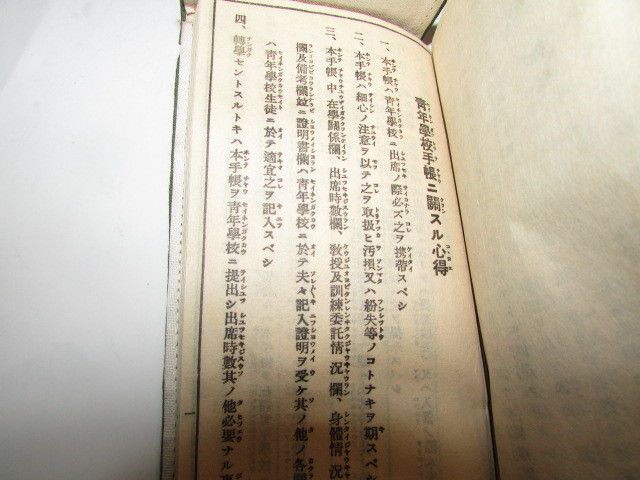 青年學校手帳ニ關スル心得
一、本手帳ハ青年學校ニ出席ノ際必ズ之ヲ携帶スベシ
二、本手帳ハ細心ノ注意ヲ以テ之ヲ取扱ヒ汚損又ハ紛失等ノコトナキヲ期スベシ
三、本手帳中在學關係欄、出席時數欄、敎授及訓練委託情況欄、身體情況
欄及備考欄竝ニ證明書欄ハ青年學校ニ於テ夫々記入證明ヲ受ケ其ノ他ノ各
ハ青年學校生徒ニ於テ適宜之ヲ記入スベシ
四、轉學セントスルトキハ本手帳ヲ青年學校ニ提出シ出席時數其ノ他必要ナル